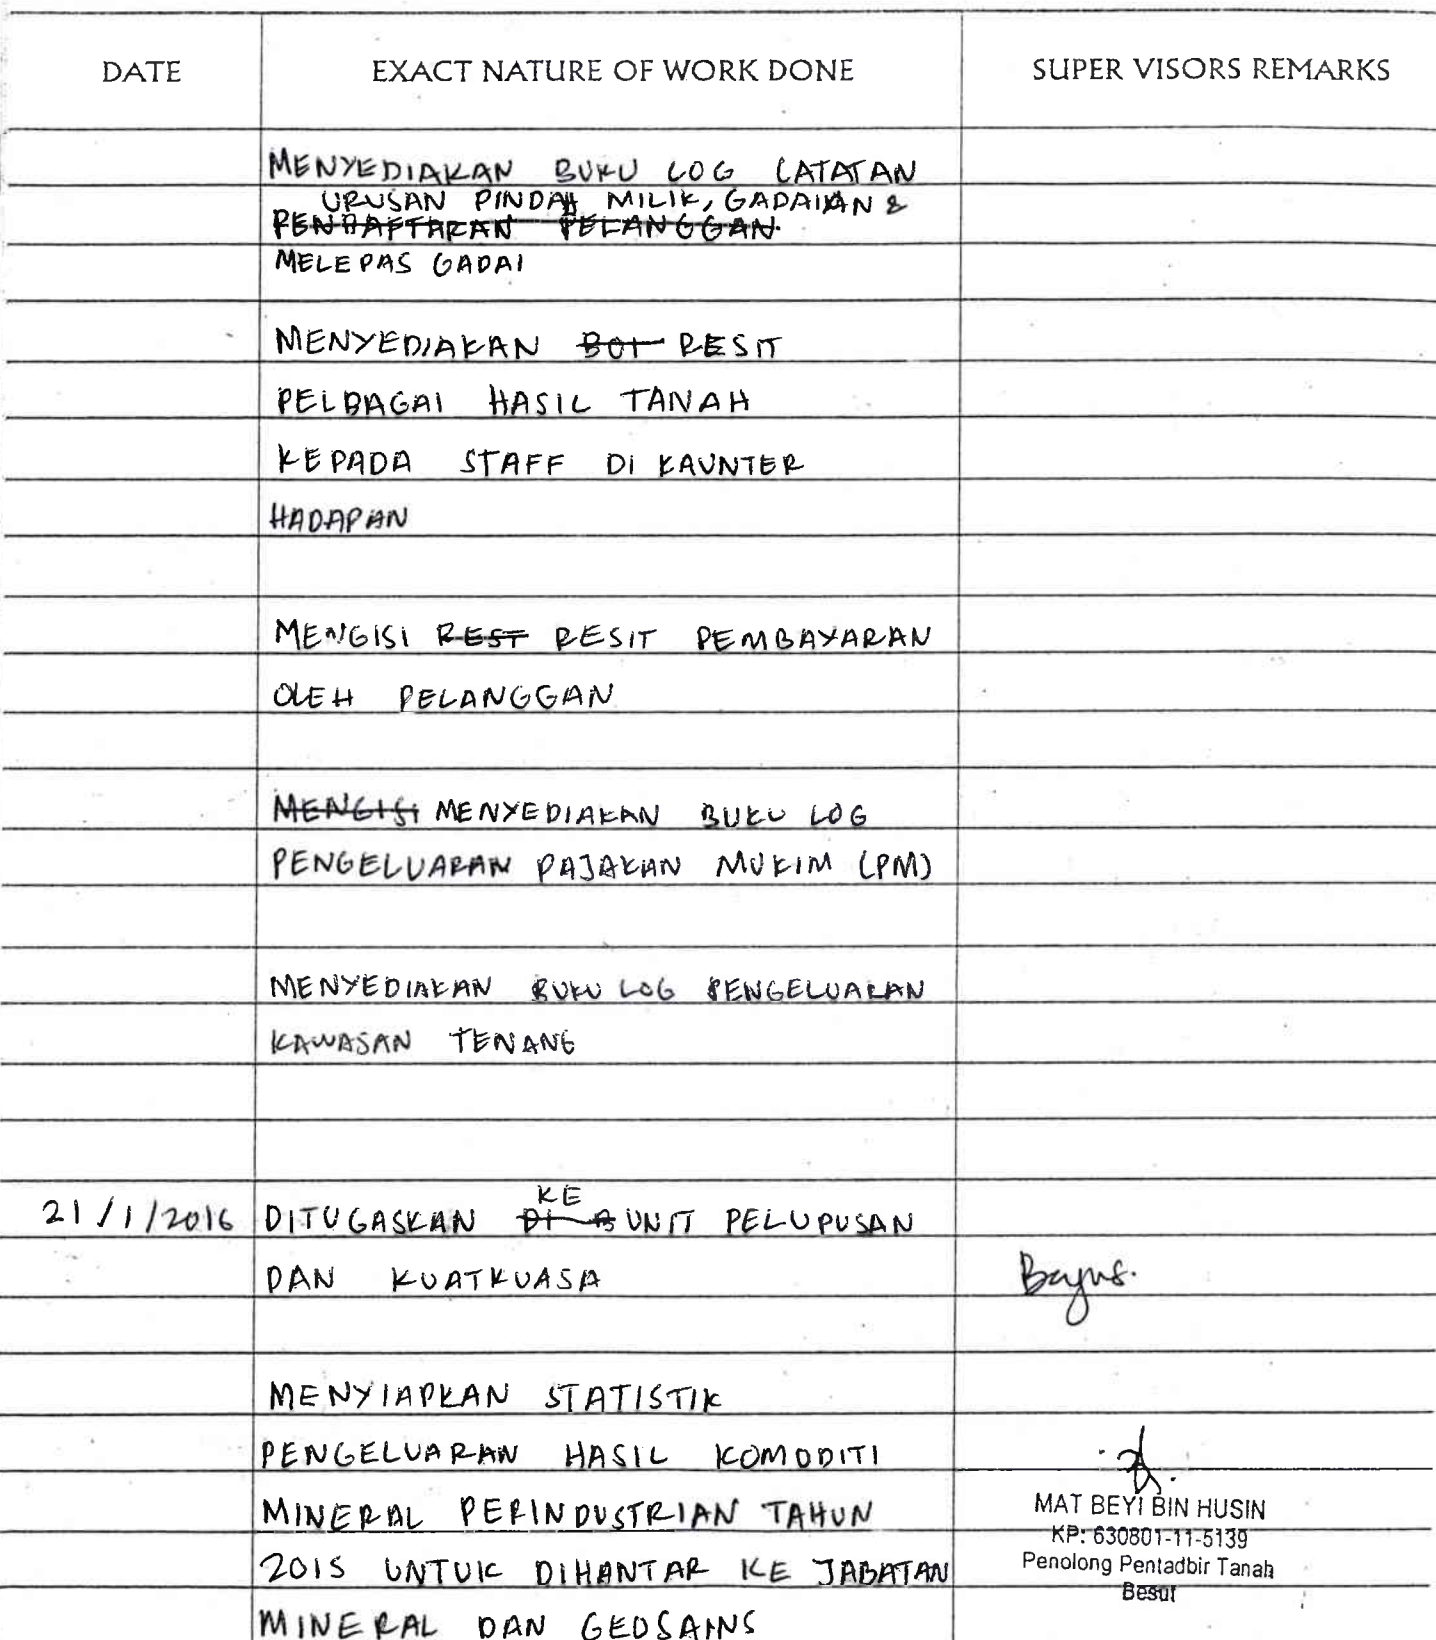 DATE EXACT NATURE OF WORK DONE SUPER VISORS REMARKS
MENYEDIAKAN BUKU LOG CATATAN
URUSAN PINDAH MILIK, GADAIAN &
PENDAFTARAN PELANGGAN.
MELEPAS GADAI
MENYEDIAKAN BOT RESIT
PELBAGAI HASIL TANAH
KEPADA STAFF DI KAUNTER
HADAPAN
MENGISI REST RESIT PEMBAYARAN
OLEH PELANGGAN
MENGISI MENYEDIAKAN BUKU LOG
PENGELUARAN PAJAKAN MUKIM (PM)
MENYEDIAKAN BUKU LOG PENGELUARAN
KAWASAN TENANG
KE
21/1/2016 DITUGASKAN DI B UNIT PELUPUSAN
DAN KUATKUASA Bagus.
MENYIAPKAN STATISTIK
PENGELUARAN HASIL KOMODITI
MINERAL PERINDUSTRIAN TAHUN MAT BEYI BIN HUSIN
KP: 630801-11-5139
2015 UNTUK DIHANTAR KE JABATAN Penolong Pentadbir Tanah
Besut
MINERAL DAN GEOSAINS